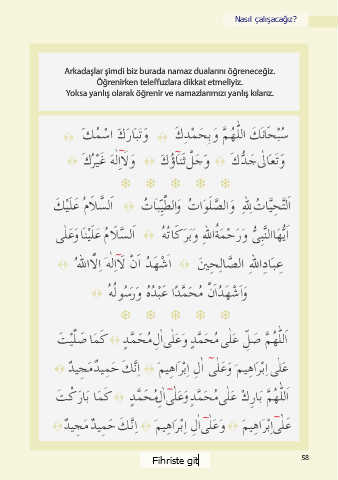 Nasıl çalışacağız?
Arkadaşlar şimdi biz burada namaz dualarını öğreneceğiz.
Öğrenirken teleffuzlara dikkat etmeliyiz.
Yoksa yanlış olarak öğrenir ve namazlarımızı yanlış kılarız.
سُبْحَانَكَ اللّٰهُمَّ وَبِحَمْدِكَ ﴿﴾ وَتَبَارَكَ اسْمُكَ ﴿﴾
وَتَعَالٰى جَدُّكَ ﴿﴾ وَجَلَّ ثَنَاؤُكَ ﴿﴾ وَلَا اِلٰهَ غَيْرُكَ ﴿﴾
اَلتَّحِيَّاتُ لِلّٰهِ وَالصَّلَوَاتُ وَالطَّيِّبَاتُ ﴿﴾ اَلسَّلَامُ عَلَيْكَ
اَيُّهَا النَّبِىُّ وَرَحْمَةُ اللّٰهِ وَبَرَكَاتُهُ ﴿﴾ اَلسَّلَامُ عَلَيْنَا وَعَلٰى
عِبَادِ اللّٰهِ الصَّالِحِينَ ﴿﴾ اَشْهَدُ اَنْ لَا اِلٰهَ اِلَّا اللّٰهُ ﴿﴾
وَاَشْهَدُ اَنَّ مُحَمَّدًا عَبْدُهُ وَرَسُولُهُ ﴿﴾
اَللّٰهُمَّ صَلِّ عَلٰى مُحَمَّدٍ وَعَلٰى اٰلِ مُحَمَّدٍ ﴿﴾ كَمَا صَلَّيْتَ
عَلٰى اِبْرَاهِيمَ وَعَلٰى اٰلِ اِبْرَاهِيمَ ﴿﴾ اِنَّكَ حَمِيدٌ مَجِيدٌ ﴿﴾
اَللّٰهُمَّ بَارِكْ عَلٰى مُحَمَّدٍ وَعَلٰى اٰلِ مُحَمَّدٍ ﴿﴾ كَمَا بَارَكْتَ
عَلٰى اِبْرَاهِيمَ ﴿﴾ وَعَلٰى اٰلِ اِبْرَاهِيمَ ﴿﴾ اِنَّكَ حَمِيدٌ مَجِيدٌ ﴿﴾
Fihriste git
58